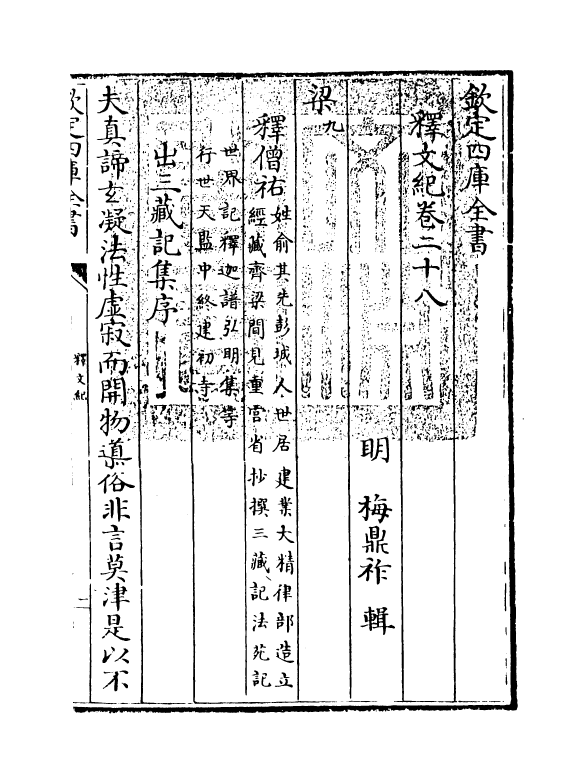 欽定四庫全書
釋文紀卷二十八
明　梅鼎祚　輯
梁九
釋僧祐
姓俞其先彭城人世居建業大精律部造立
經藏齊梁間見重宫省抄撰三藏記法苑記
世界記釋迦譜弘明集等
行世天監中終建初寺
出三藏記集序
夫真諦玄凝法性虛寂而開物導俗非言莫津是以不
欽定四庫全書
釋文紀